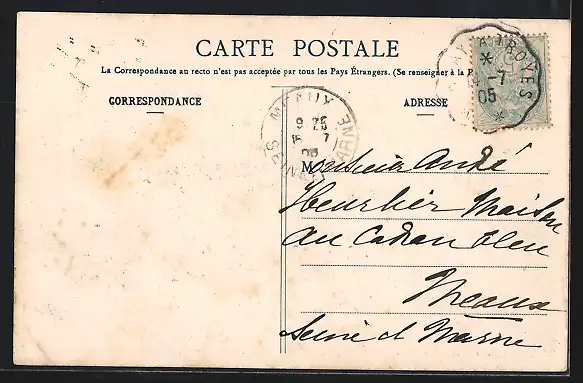 CARTE POSTALE
La Correspondance au recto n'est pas acceptée par tous les Pays Étrangers. (Se renseigner à la P
CORRESPONDANCE
ADRESSE
À TROYES
-7
05
MEAUX
9 25
15 7
05
MARNE
Monsieur André
Heurlier Maison
au Cadran bleu
Meaux
Seine et Marne